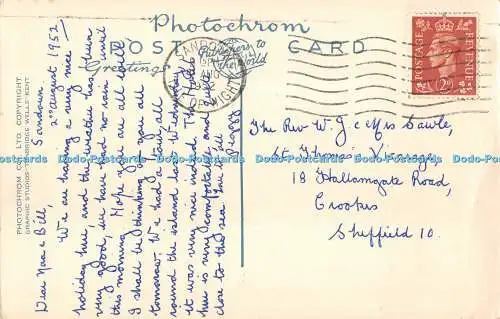 Photochrom
POST CARD
Publishers to
the World
Greetings
PHOTOCHROM CO. LTD. COPYRIGHT
GRAPHIC STUDIOS TUNBRIDGE WELLS KENT
Sandown
2nd August 1952
Dear Nora & Bill,
We are having a very nice
holiday here, and the weather has been
very good, we have had no rain until
this morning. Hope you are all well
I shall be thinking of you all
tomorrow. We had a lovely sail
round the island last Wednesday
it was very nice indeed. The Hotel
here is very comfortable and quite
close to the sea. Love to all
Peggy
The Rev. W. J. & Mrs Sawle,
St Thomas' Vicarage
18 Hallamgate Road,
Crookes
Sheffield 10.
SANDOWN
WIGHT
POSTAGE REVENUE
2D
Postcards Dodo-Postcards Dodo-Postcards Dodo-Postcards Dodo-Postcards